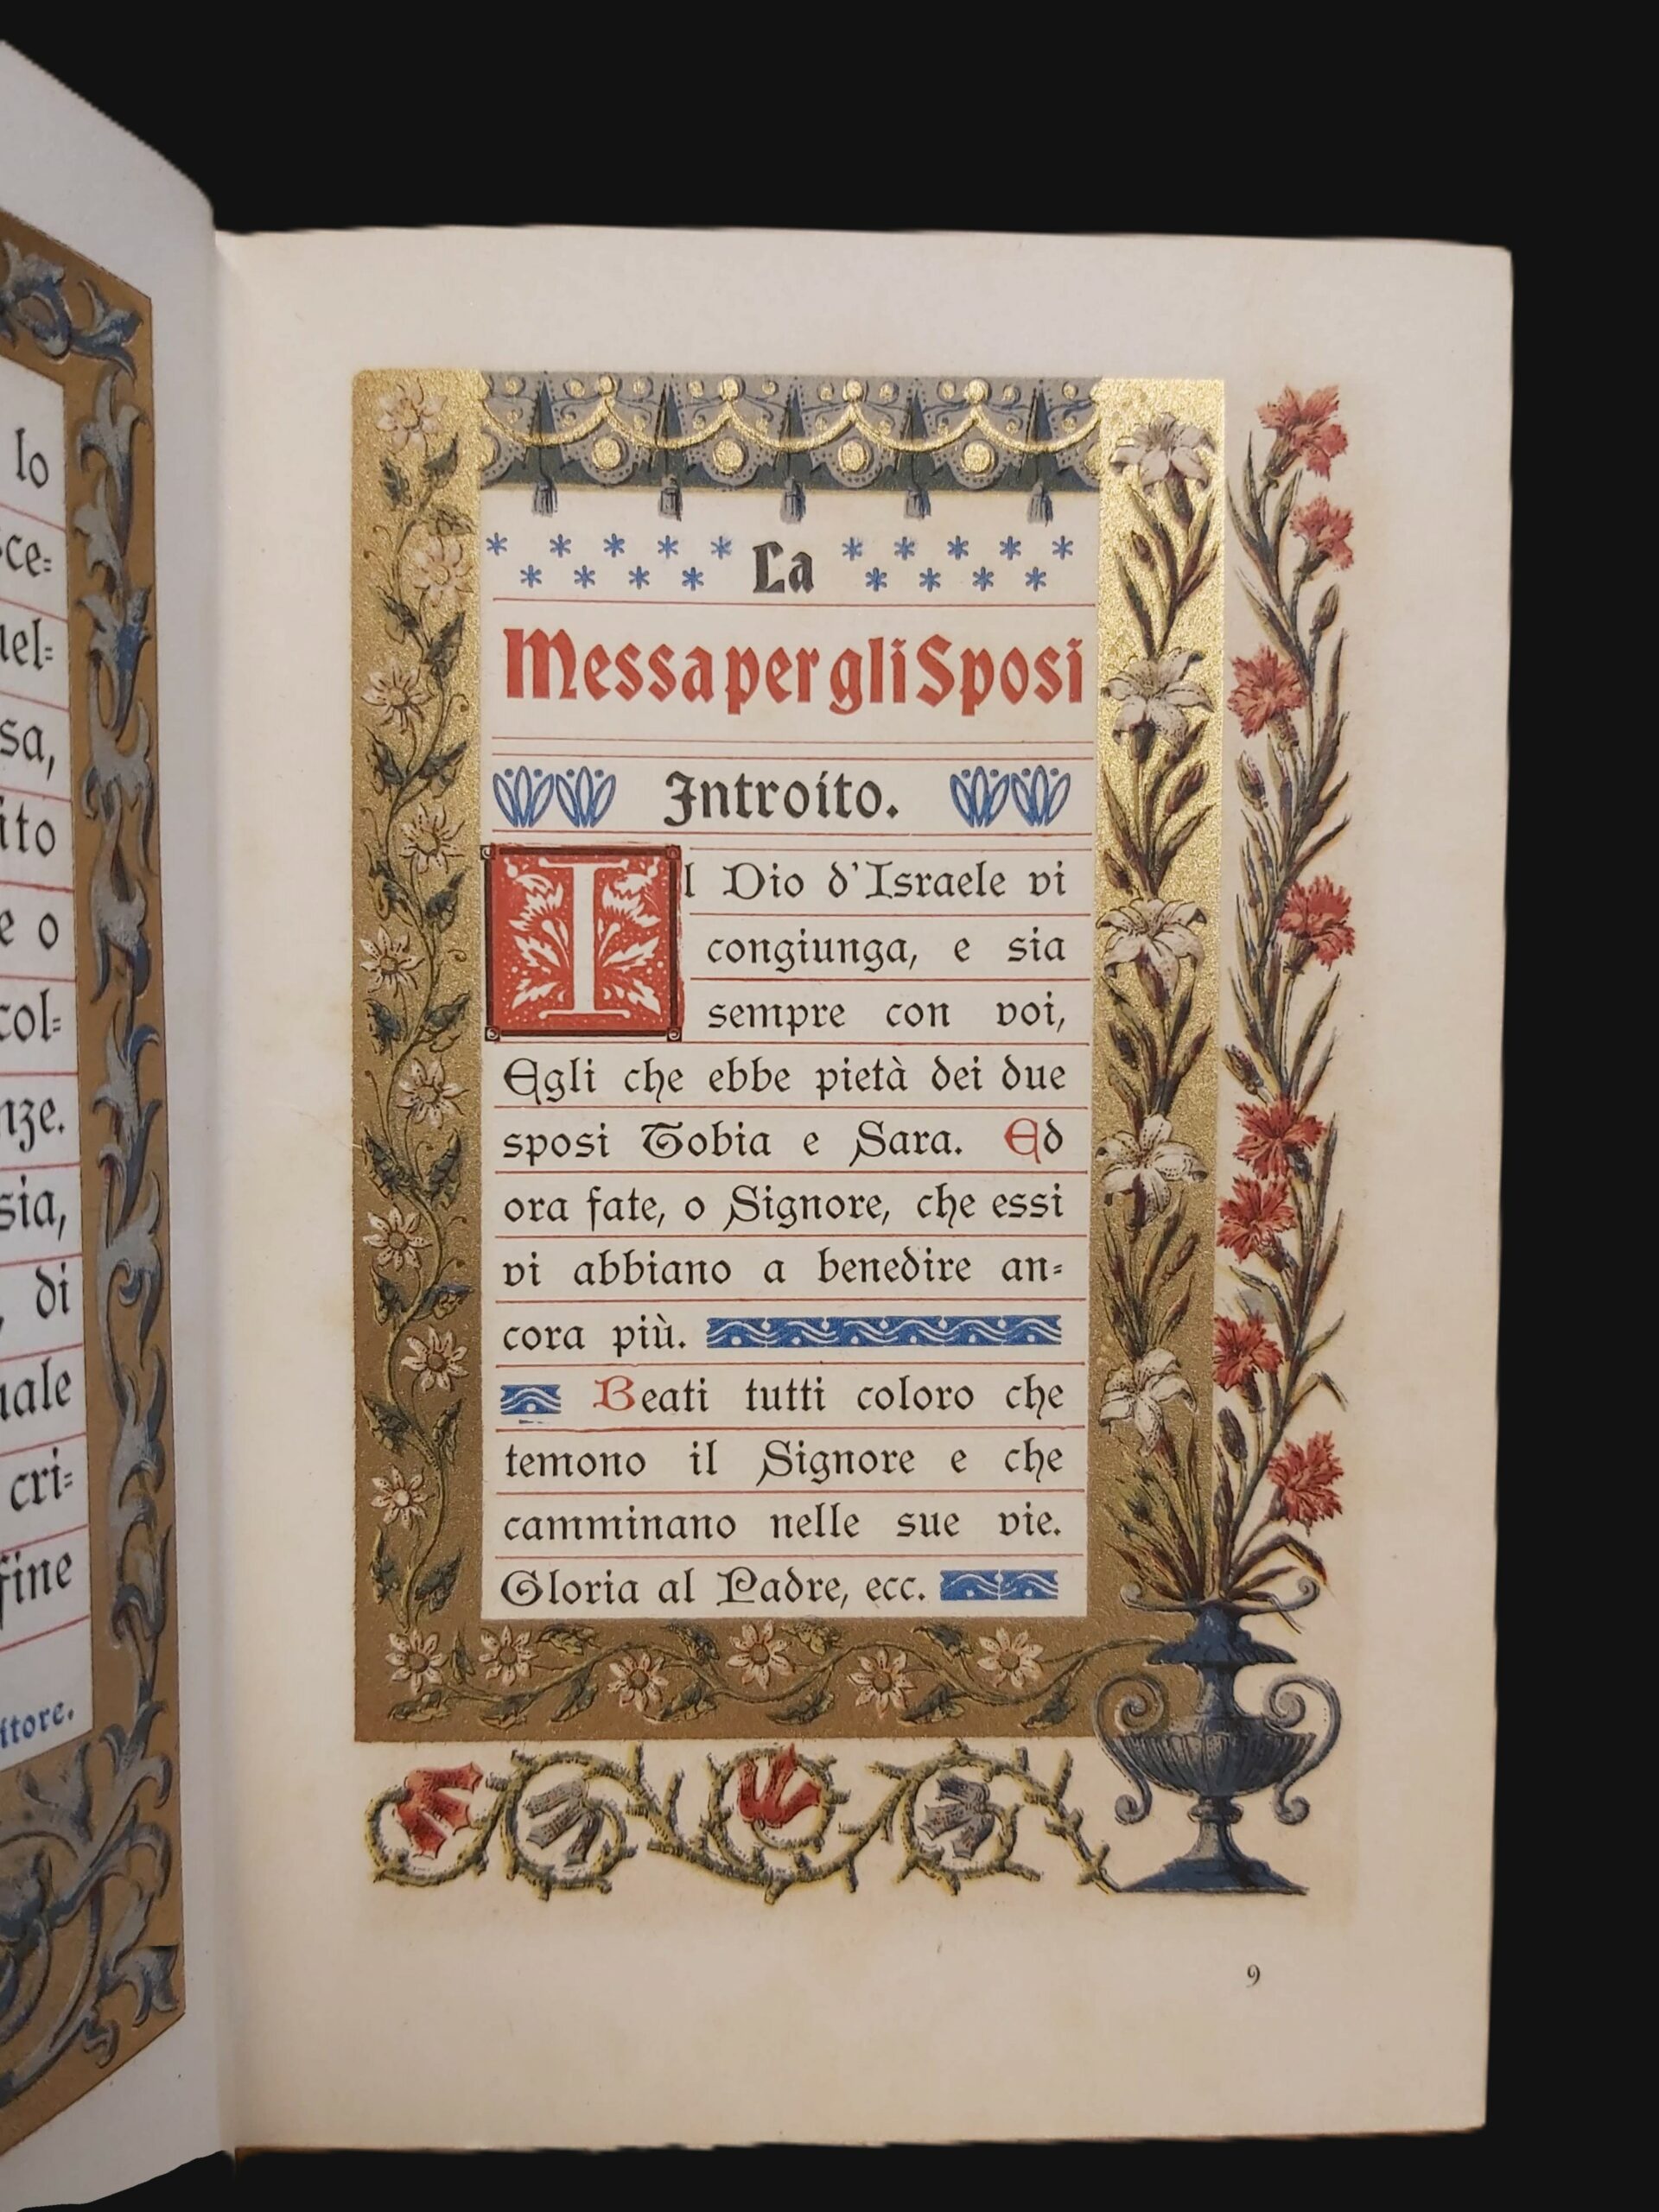 lo
ce=
uel=
sa,
ito
e o
col=
nze.
sia,
, di
uale
cri=
fine
ttore.
La
Messa per gli Sposi
Introito.
Il Dio d'Israele vi
congiunga, e sia
sempre con voi,
Egli che ebbe pietà dei due
sposi Tobia e Sara. Ed
ora fate, o Signore, che essi
vi abbiano a benedire an=
cora più.
Beati tutti coloro che
temono il Signore e che
camminano nelle sue vie.
Gloria al Padre, ecc.
9